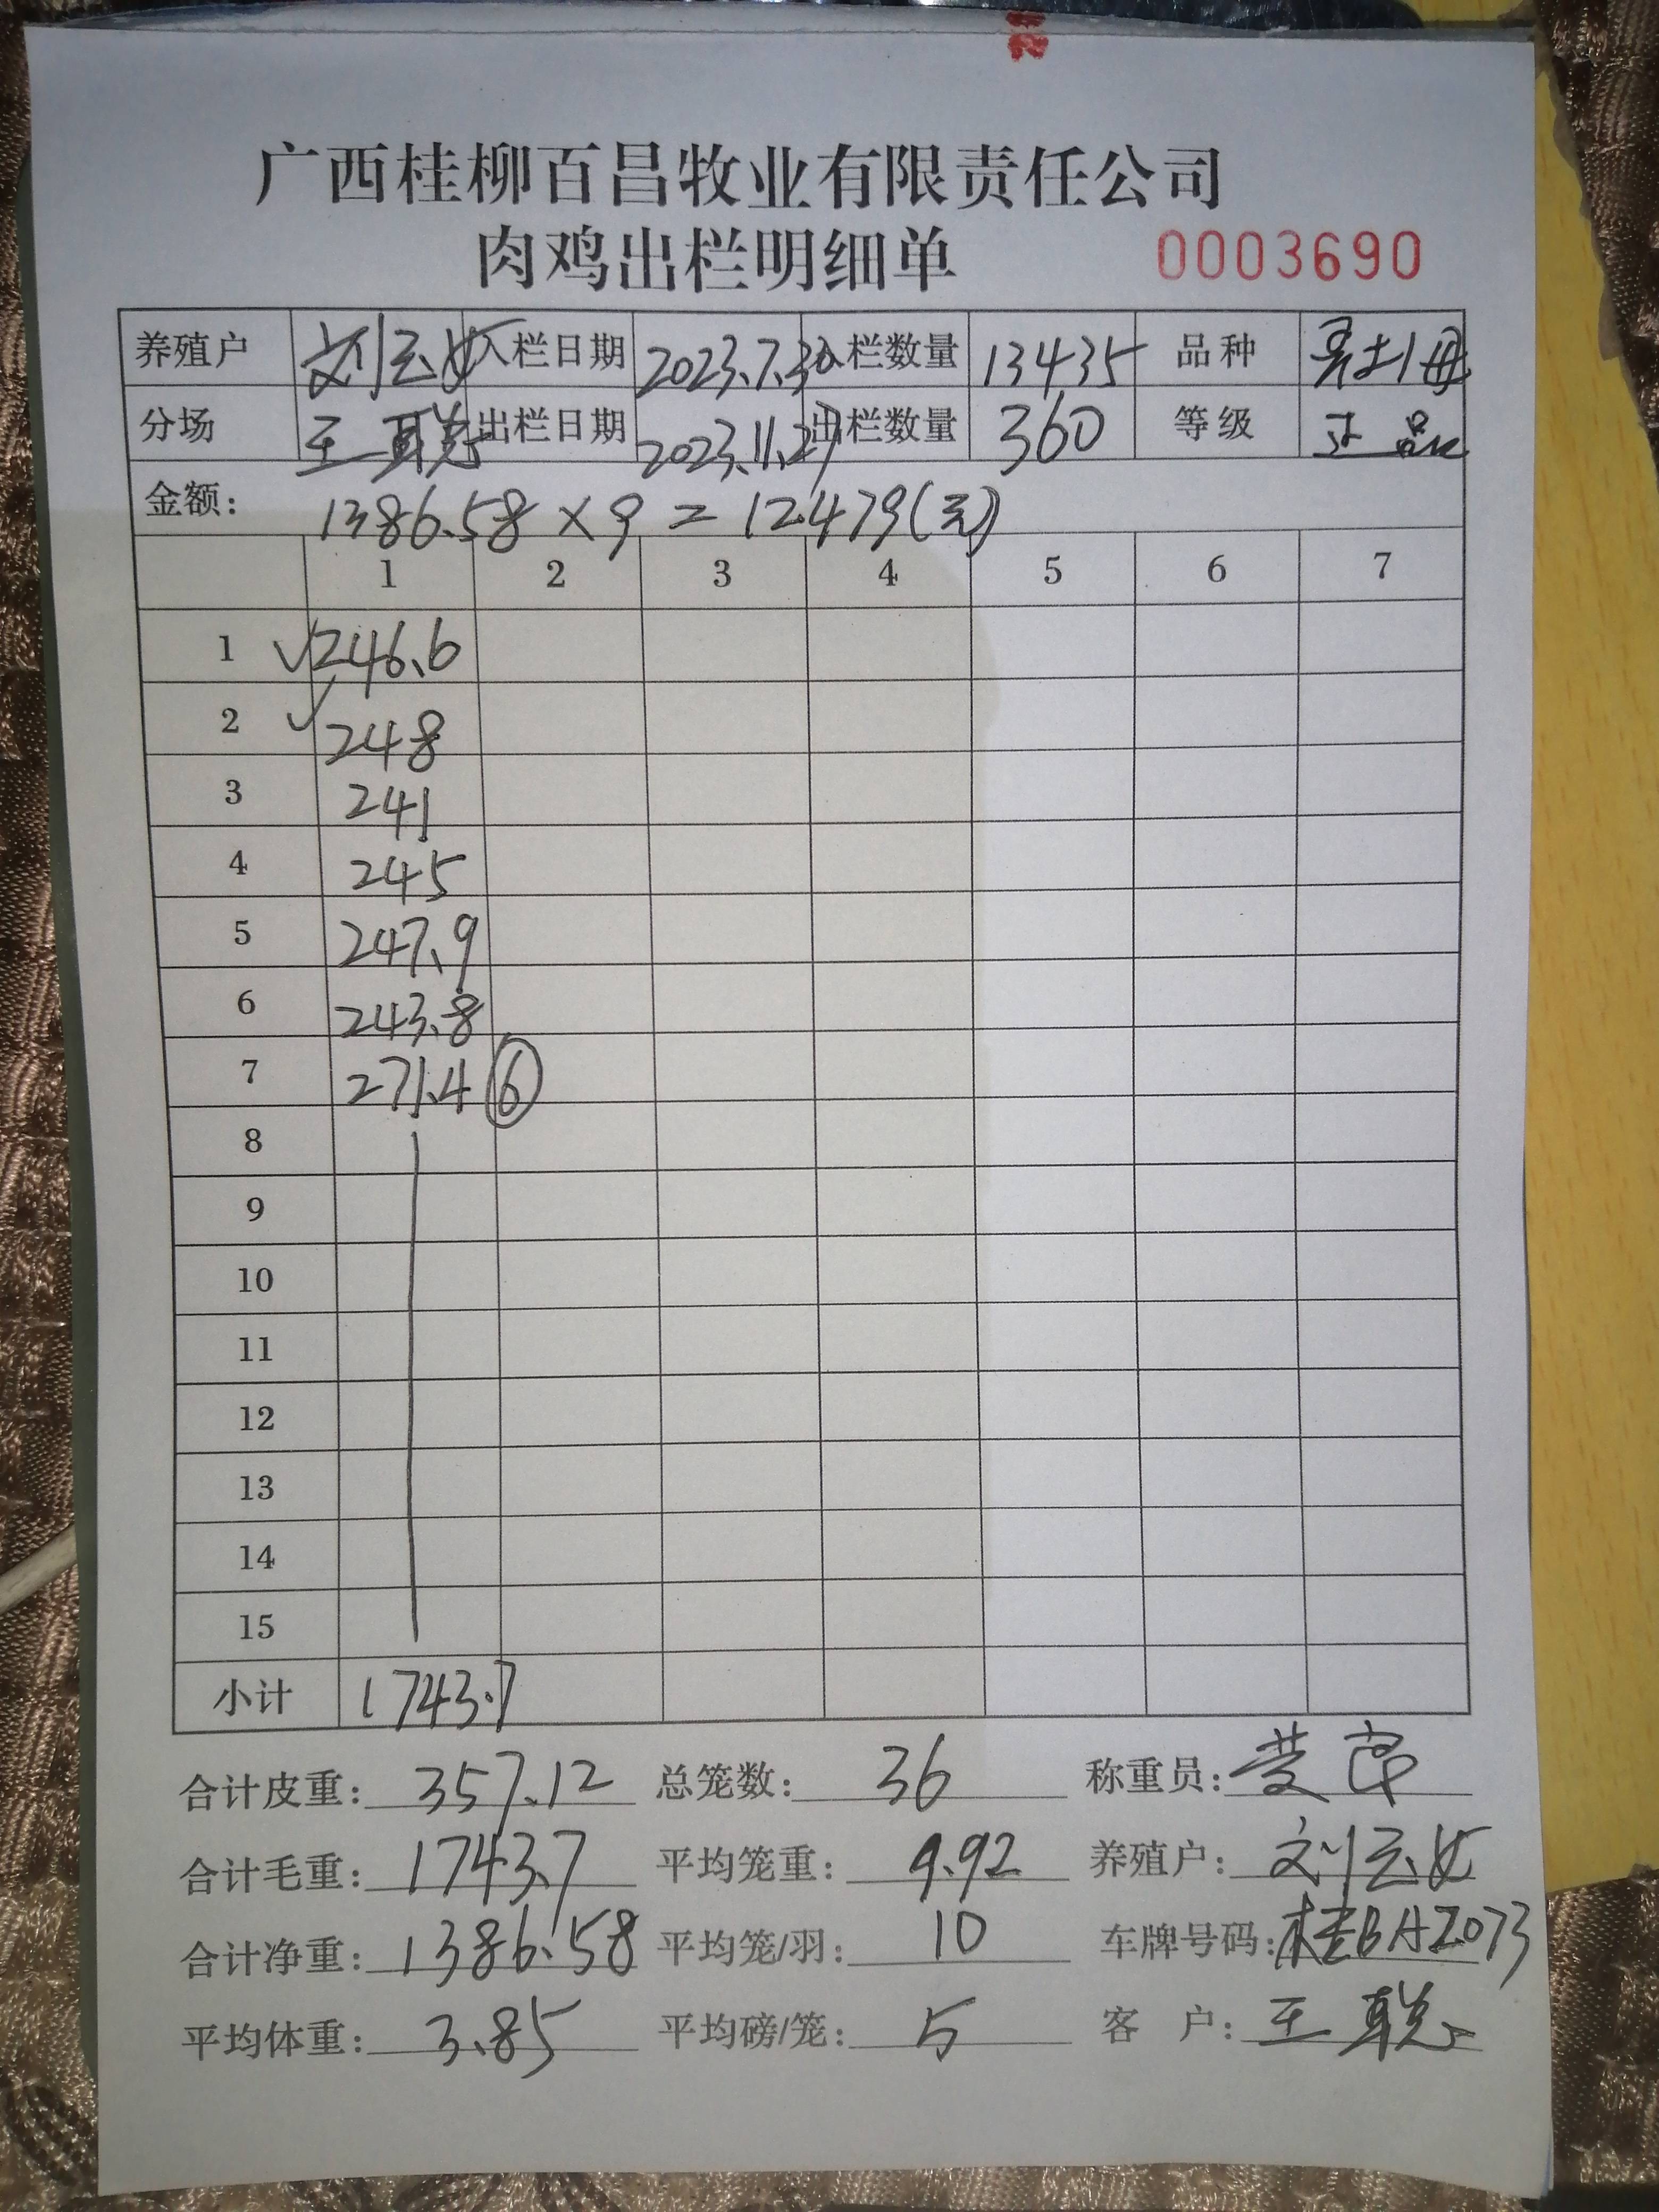 广西桂柳百昌牧业有限责任公司
肉鸡出栏明细单 0003690
养殖户 刘云女 入栏日期 2023.7.30 入栏数量 13435 品种
分场 王聪 出栏日期 2023.11.27 出栏数量 360 等级 正品
金额: 1386.58×9=12479(元)
1 2 3 4 5 6 7
1 √246.6
2 √248
3 241
4 245
5 247.9
6 243.8
7 271.4 ⑥
8
9
10
11
12
13
14
15
小计 1743.7
合计皮重: 357.12 总笼数: 36 称重员:
合计毛重: 1743.7 平均笼重: 9.92 养殖户: 刘云女
合计净重: 1386.58 平均笼/羽: 10 车牌号码: 桂BAZ073
平均体重: 3.85 平均磅/笼: 5 客 户: 王聪